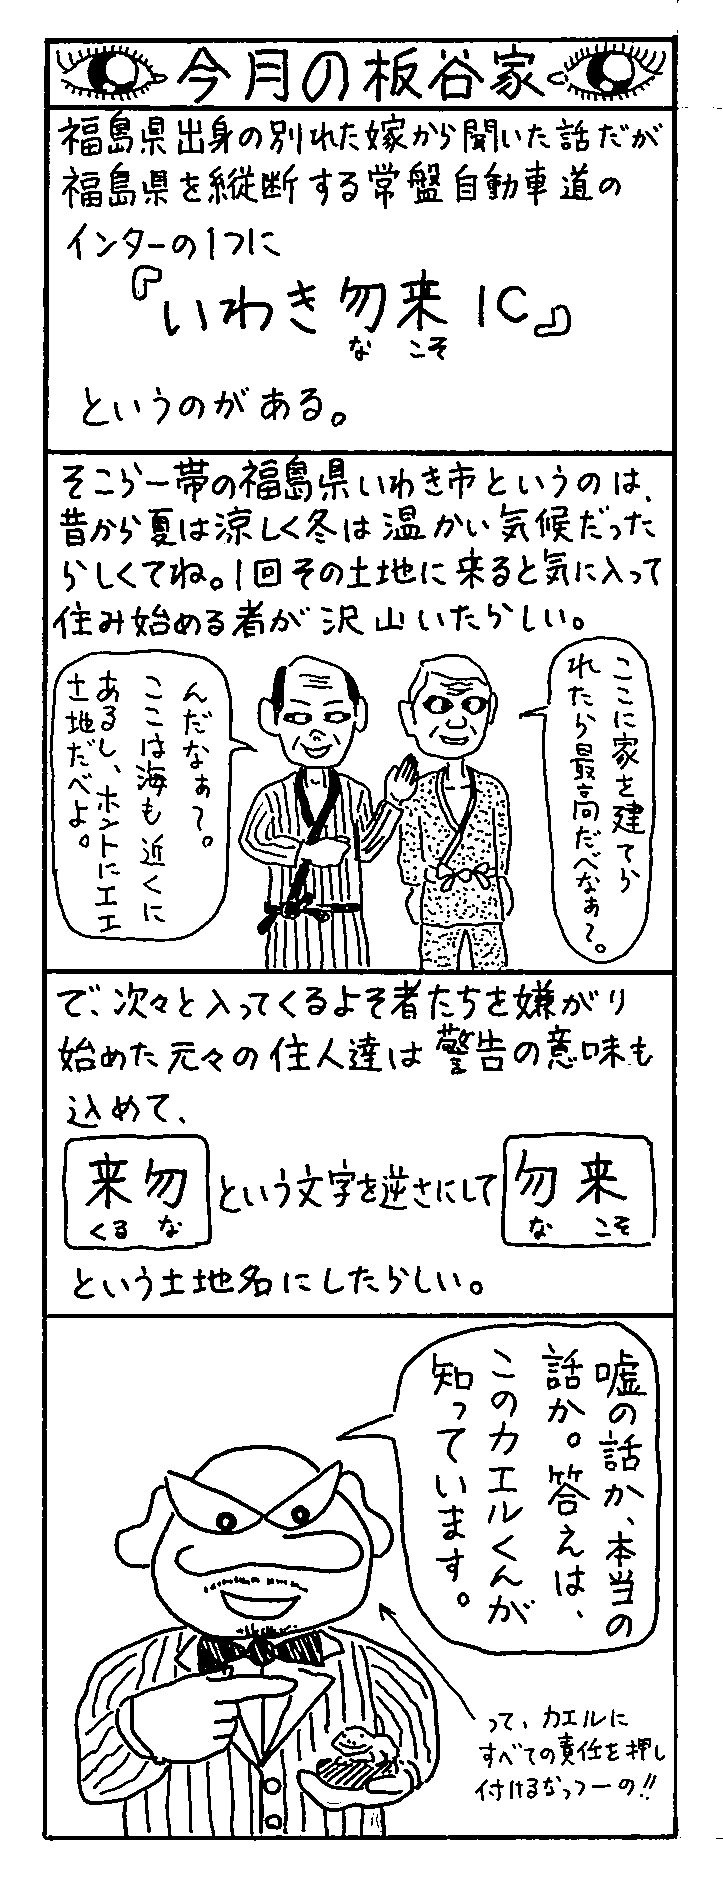 今月の板谷家
福島県出身の別れた嫁から聞いた話だが
福島県を縦断する常盤自動車道の
インターの1つに
『いわき勿来IC』
な こそ
というのがある。
そこら一帯の福島県いわき市というのは、
昔から夏は涼しく冬は温かい気候だった
らしくてね。1回その土地に来ると気に入って
住み始める者が沢山いたらしい。
ここに家を建てら
れたら最高だべなぁ〜。
んだなぁ〜。
ここは海も近くに
あるし、ホントにエエ
土地だべよ。
で、次々と入ってくるよそ者たちを嫌がり
始めた元々の住人達は警告の意味も
込めて、
来勿
くる な
という文字を逆さにして
勿来
な こそ
という土地名にしたらしい。
嘘の話か、本当の
話か。答えは、
このカエルくんが
知っています。
って、カエルに
すべての責任を押し
付けるなっつーの!!